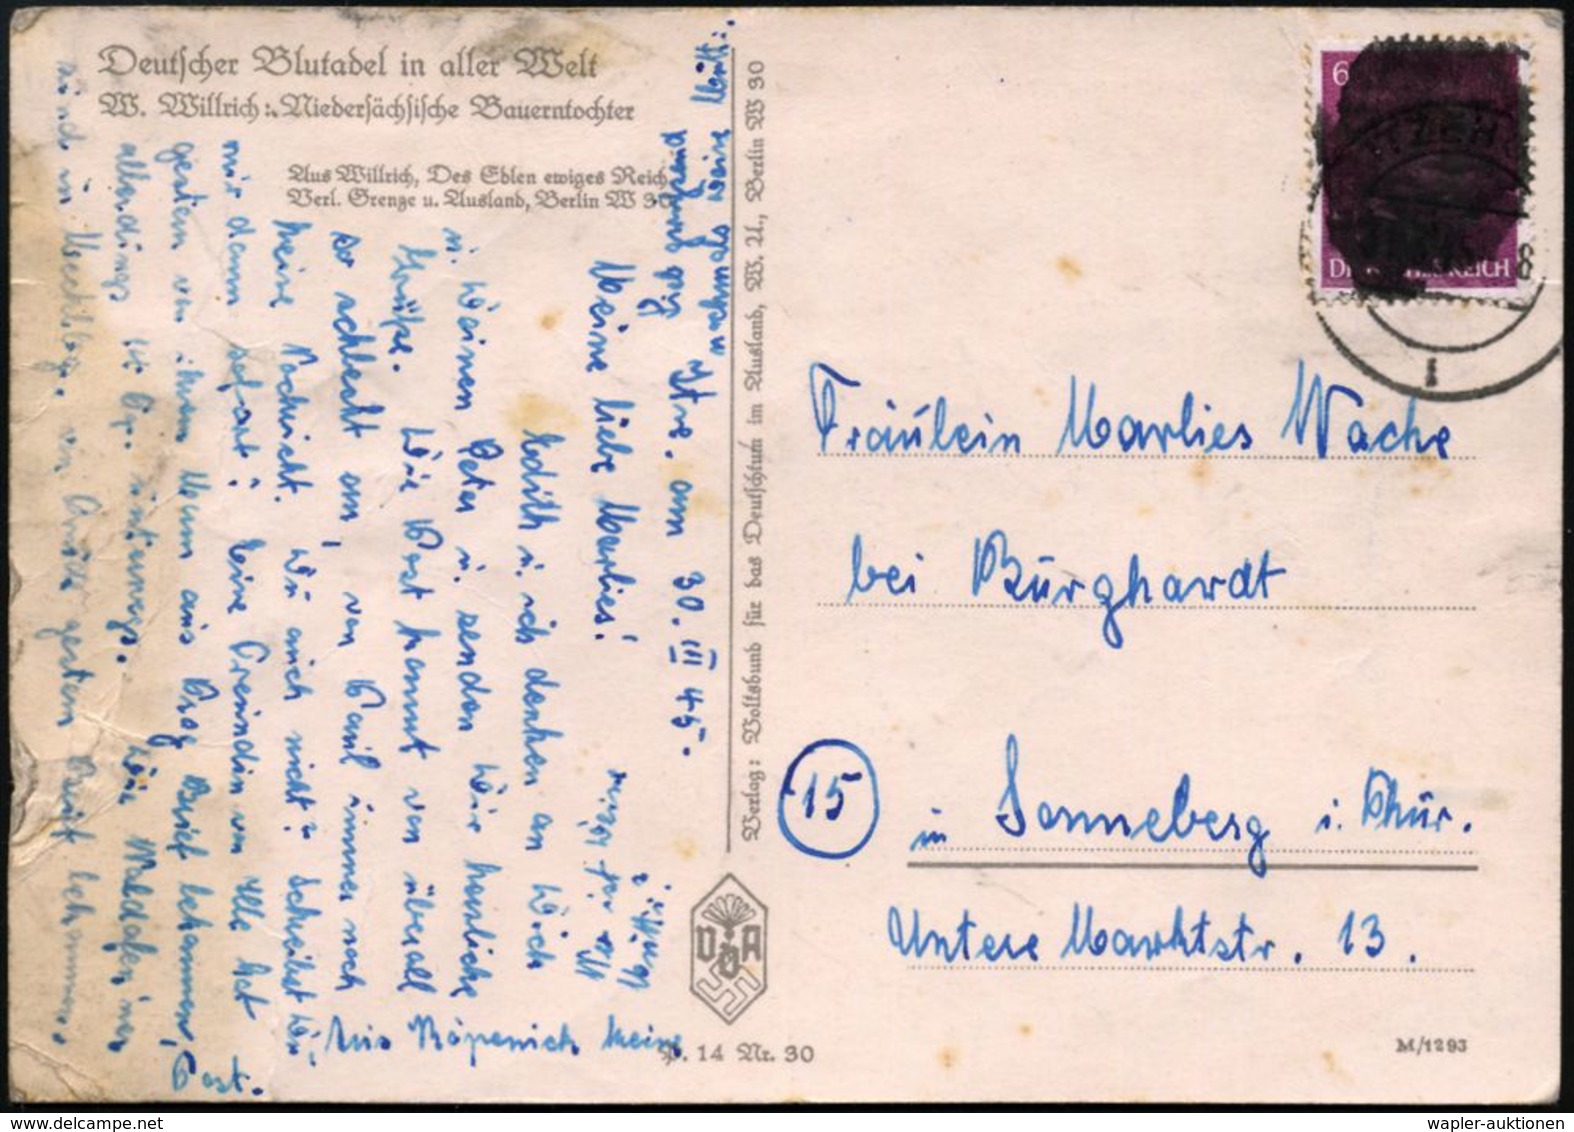 Deutscher Blutadel in aller Welt
W. Willrich: Niedersächsische Bauerntochter
Aus Willrich, Des Edlen ewiges Reich
Verl. Grenze u. Ausland, Berlin W 30
Verlag: Volksbund für das Deutschtum im Ausland, W. A., Berlin W 30
Itze. am 30. III 45.
Meine liebe Marlies!
Edith u. ich denken an Dich
u. Deinen Peter u. senden Dir herzliche
Grüße. Die Post kommt von überall
so schlecht an, von Paul immer noch
keine Nachricht. Du auch nicht? Schreibst Du
mir dann sofort? Eine Freundin von Elle hat
gestern von ihrem Mann aus Prag Brief bekommen,
allerdings ist Er. unterwegs. Die
sind in Mecklbg. gestern Brief bekommen.
Aus Köpenick keine
Post.
nochmals
VDA
P. 14 Nr. 30
6
DEUTSCHES REICH
ITZEHO
Fräulein Marlies Wache
bei Burghardt
15
in Sonneberg i. Thür.
Untere Marktstr. 13.
M/1293
wapler-auktionen